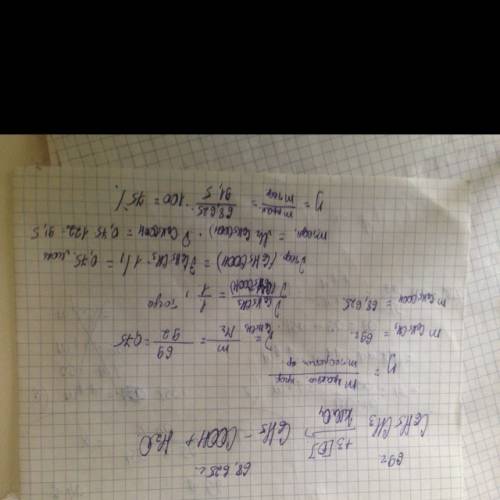 69г 68,625г
C6H5CH3 +3[O] KMnO4 C6H5 - COOH + H2O
η = m практ прод / m теоретич пр
m C6H5CH3 = 69г ν C6H5CH3 = m / Mr = 69 / 92 = 0,75
m C6H5COOH = 68,625 ν C6H5CH3 / ν (C6H5COOH) = 1 / 1, тогда
ν теор (C6H5COOH) = ν C6H5CH3 · 1/1 = 0,75 моль
m теор. = Mr (C6H5COOH) · ν C6H5COOH = 0,75 · 122 = 91,5
η = m прак / m теор = 68,625 / 91,5 · 100 = 75%